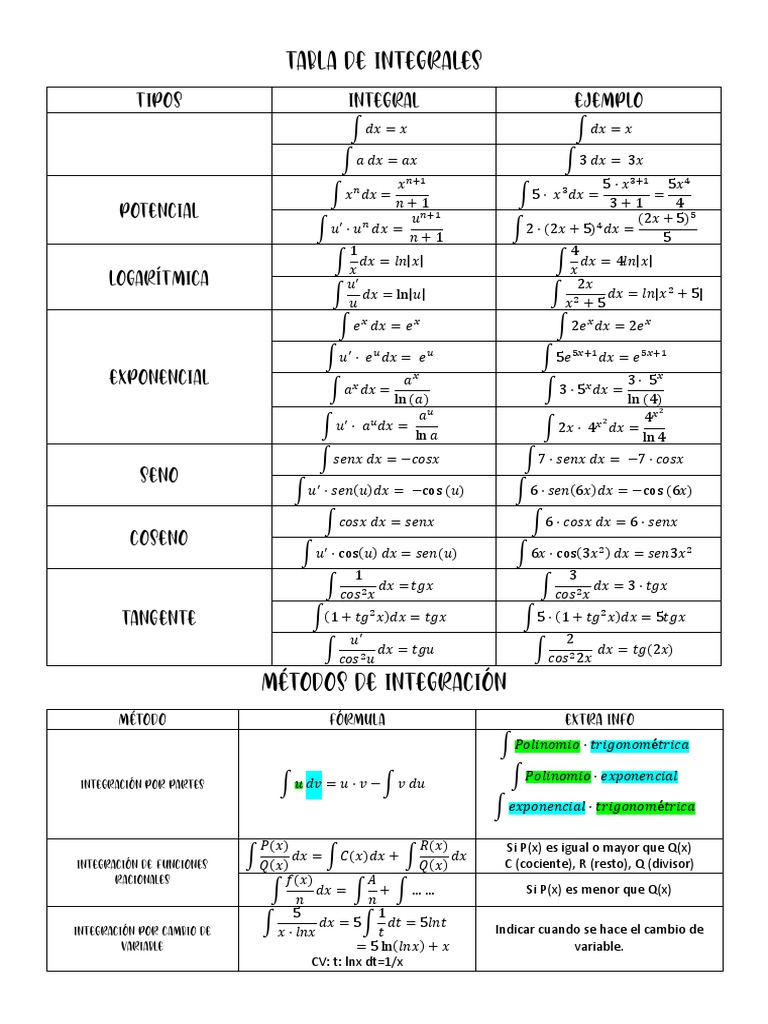 TABLA DE INTEGRALES
TIPOS INTEGRAL EJEMPLO
∫ dx = x ∫ dx = x
∫ a dx = ax ∫ 3 dx = 3x
POTENCIAL
∫ xⁿdx = xⁿ⁺¹/(n + 1) ∫ 5 · x³dx = (5 · x³⁺¹)/(3 + 1) = 5x⁴/4
∫ u′ · uⁿ dx = uⁿ⁺¹/(n + 1) ∫ 2 · (2x + 5)⁴dx = (2x + 5)⁵/5
LOGARÍTMICA
∫ 1/x dx = ln|x| ∫ 4/x dx = 4ln|x|
∫ u′/u dx = ln|u| ∫ 2x/(x² + 5) dx = ln|x² + 5|
EXPONENCIAL
∫ eˣ dx = eˣ ∫ 2eˣdx = 2eˣ
∫ u′ · eᵘdx = eᵘ ∫ 5e⁵ˣ⁺¹dx = e⁵ˣ⁺¹
∫ aˣdx = aˣ/ln (a) ∫ 3 · 5ˣdx = 3 · 5ˣ/ln (4)
∫ u′ · aᵘdx = aᵘ/ln a ∫ 2x · 4^x² dx = 4^x²/ln 4
SENO
∫ senx dx = −cosx ∫ 7 · senx dx = −7 · cosx
∫ u′ · sen(u)dx = −cos (u) ∫ 6 · sen(6x)dx = −cos (6x)
COSENO
∫ cosx dx = senx ∫ 6 · cosx dx = 6 · senx
∫ u′ · cos(u) dx = sen(u) ∫ 6x · cos(3x²) dx = sen3x²
TANGENTE
∫ 1/cos²x dx = tgx ∫ 3/cos²x dx = 3 · tgx
∫(1 + tg²x)dx = tgx ∫ 5 · (1 + tg²x)dx = 5tgx
∫ u′/cos²u dx = tgu ∫ 2/cos²2x dx = tg(2x)
MÉTODOS DE INTEGRACIÓN
MÉTODO FÓRMULA EXTRA INFO
INTEGRACIÓN POR PARTES
∫ u dv = u · v − ∫ v du
∫ Polinomio · trigonométrica
∫ Polinomio · exponencial
∫ exponencial · trigonométrica
INTEGRACIÓN DE FUNCIONES
RACIONALES
∫ P(x)/Q(x) dx = ∫ C(x)dx + ∫ R(x)/Q(x) dx
Si P(x) es igual o mayor que Q(x)
C (cociente), R (resto), Q (divisor)
∫ f(x)/n dx = ∫ A/n + ∫ ... ...
Si P(x) es menor que Q(x)
INTEGRACIÓN POR CAMBIO DE
VARIABLE
∫ 5/(x · lnx) dx = 5 ∫ 1/t dt = 5lnt
= 5 ln(lnx) + x
CV: t: lnx dt=1/x
Indicar cuando se hace el cambio de
variable.